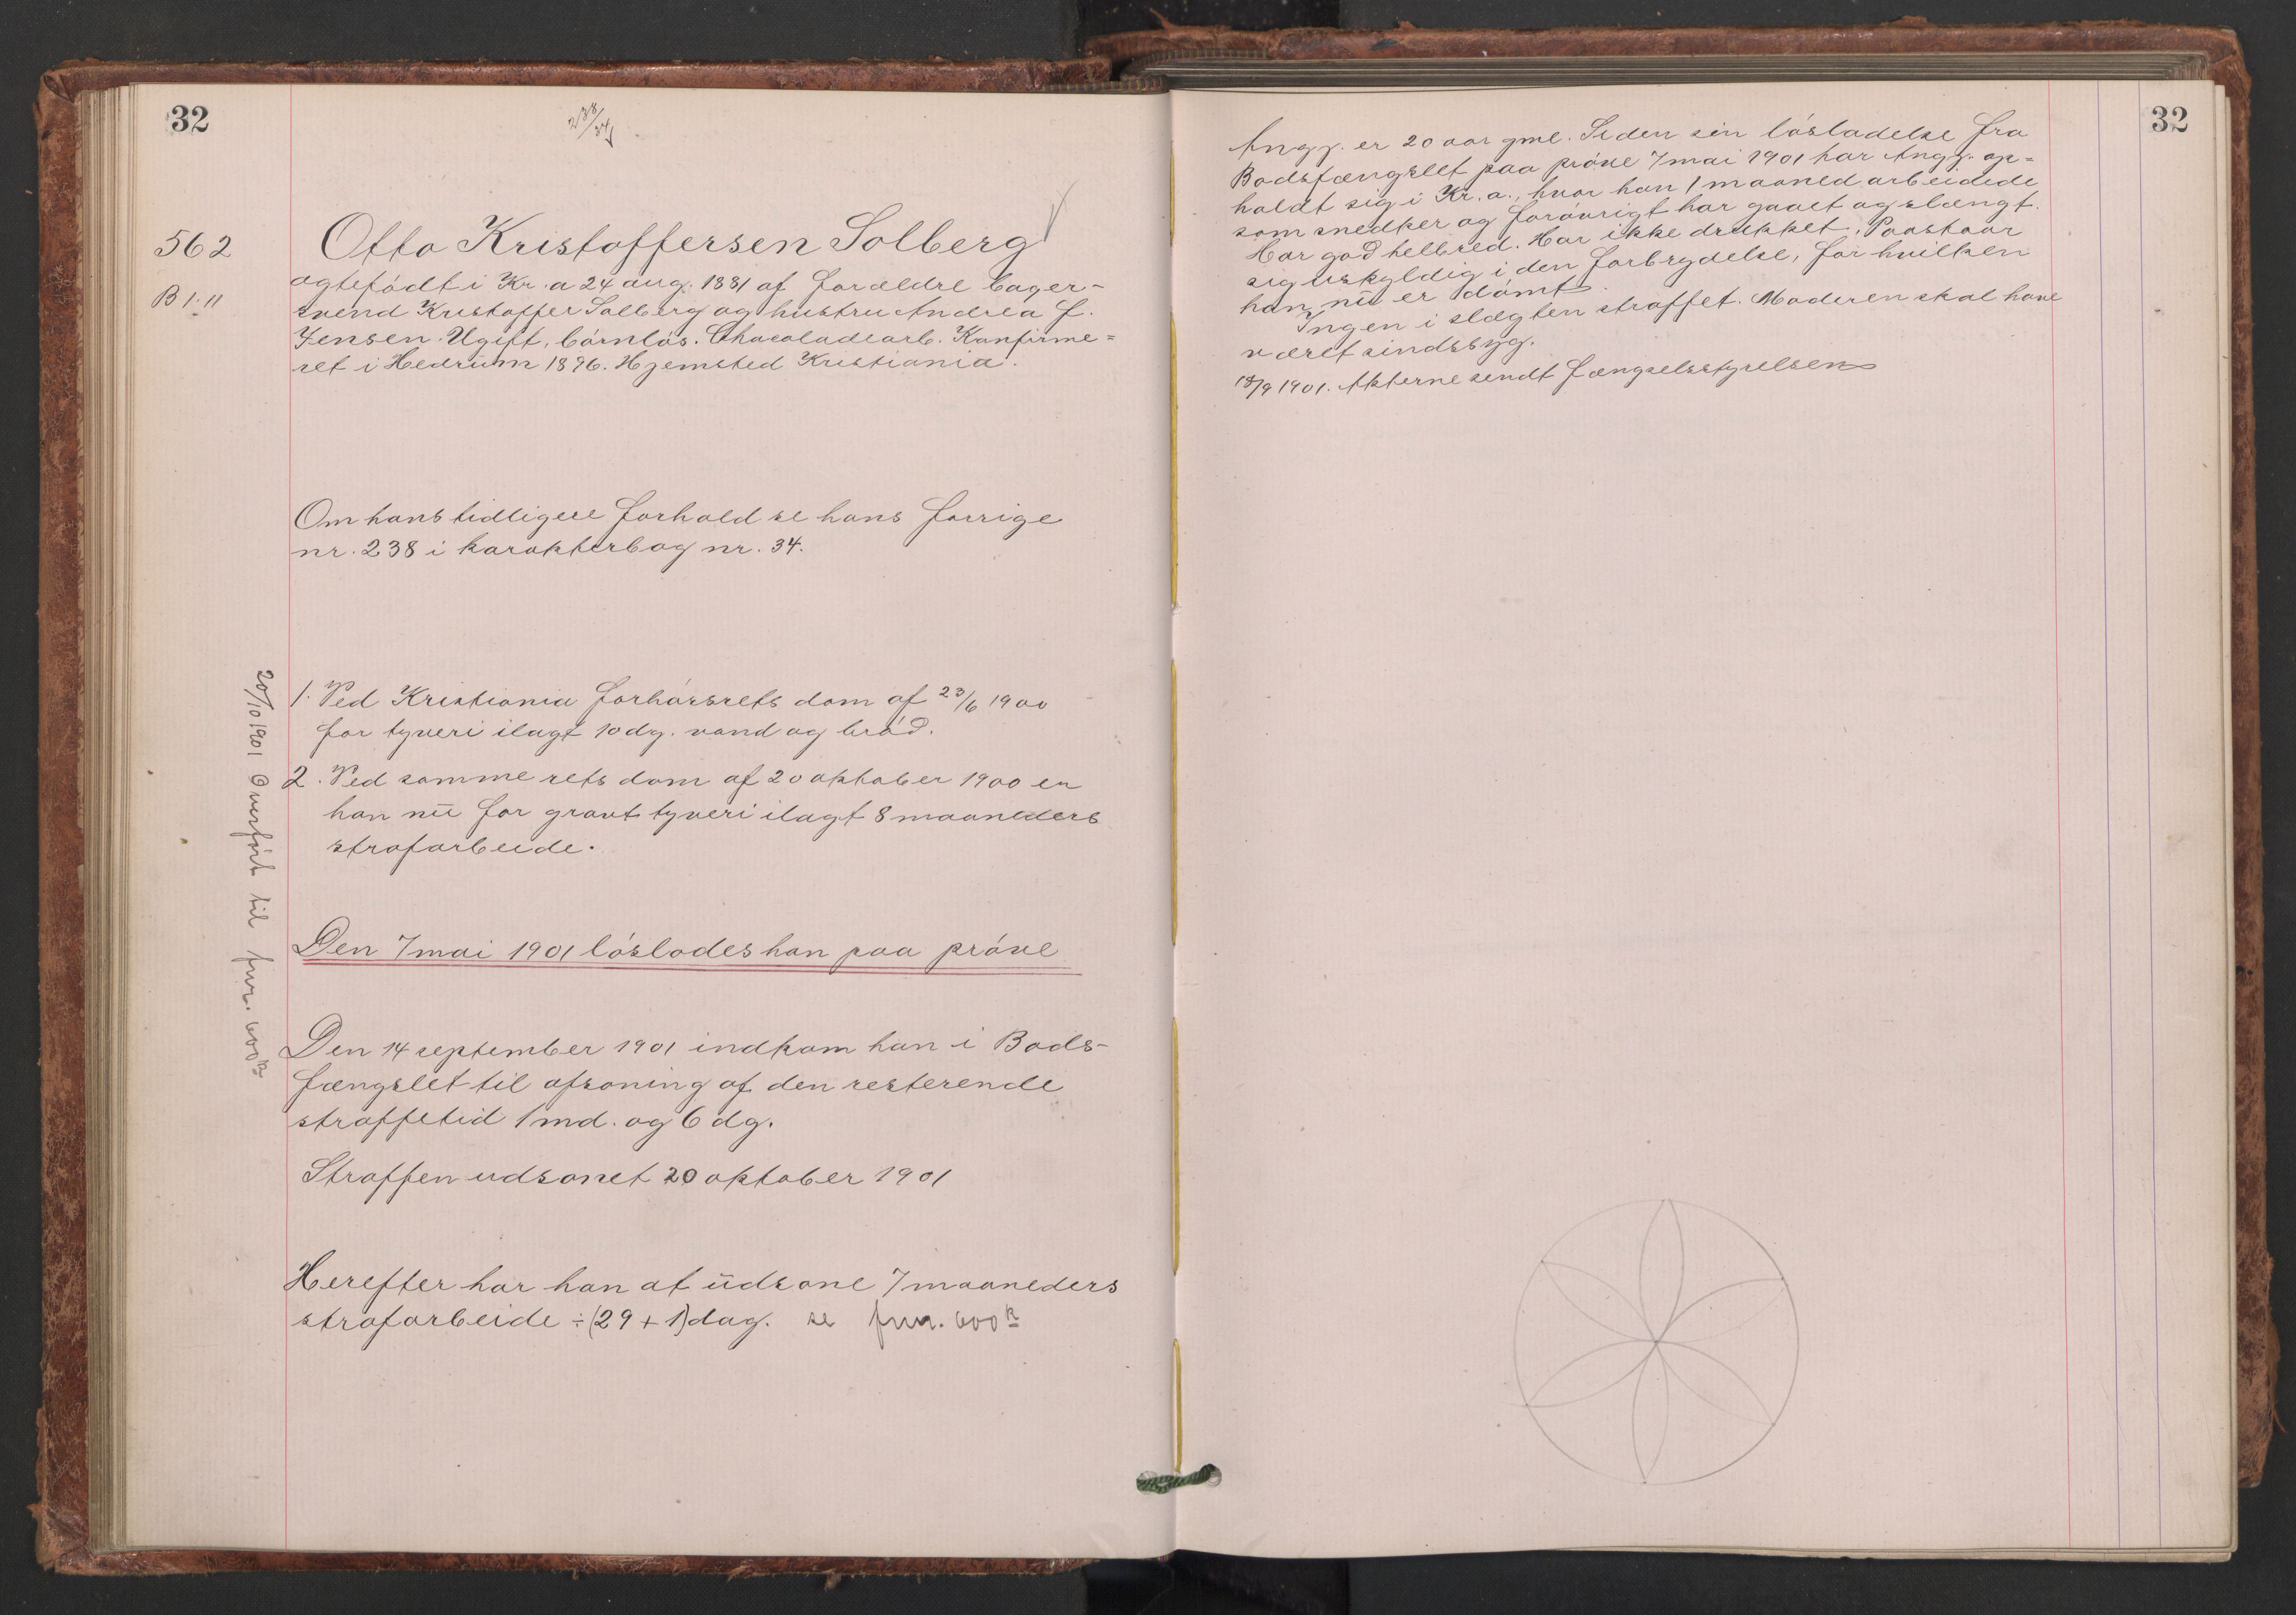 32
238/34
562
B 1.11
Otto Kristoffersen Solberg
ægtefødt i Kr.a 24 aug. 1881 af forældre bager-
svend Kristoffer Solberg og hustru Andrea f.
Jensen. Ugift, børnløs. Chocoladearb. Konfirme=
ret i Hedrum 1896. Hjemsted Kristiania.
Om hans tidligere forhold se hans forrige
nr. 238 i karakterbog nr. 34.
1. Ved Kristiania forhørsrets dom af 23/6 1900
for tyveri ilagt 10 dg. vand og brød.
2. Ved samme rets dom af 20 oktober 1900 er
han nu for grovt tyveri ilagt 8 maaneders
strafarbeide.
Den 7 mai 1901 løslodes han paa prøve
Den 14 september 1901 indkom han i Bods-
fængslet til afsoning af den resterende
straffetid 1 md. og 6 dg.
Straffen udsonet 20 oktober 1901
Herefter har han at udsone 7 maaneders
strafarbeide ÷ (29 + 1) dag. se fnr. 600 B
20/10 1901 Overført til fnr. 600 B
32
Angj. er 20 aar gml. Siden sin løsladelse fra
Bodsfængslet paa prøve 7 mai 1901 har Angj. op=
holdt sig i Kr.a., hvor han 1 maaned arbeidede
som snedker og forøvrigt har gaaet og slængt.
Har god helbred. Har ikke drukket. Paastaar
sig uskyldig i den forbrydelse, for hvilken
han nu er dømt.
Ingen i slægten straffet. Moderen skal have
været sindssyg.
18/9 1901. Akterne sendt Fængselsstyrelsen